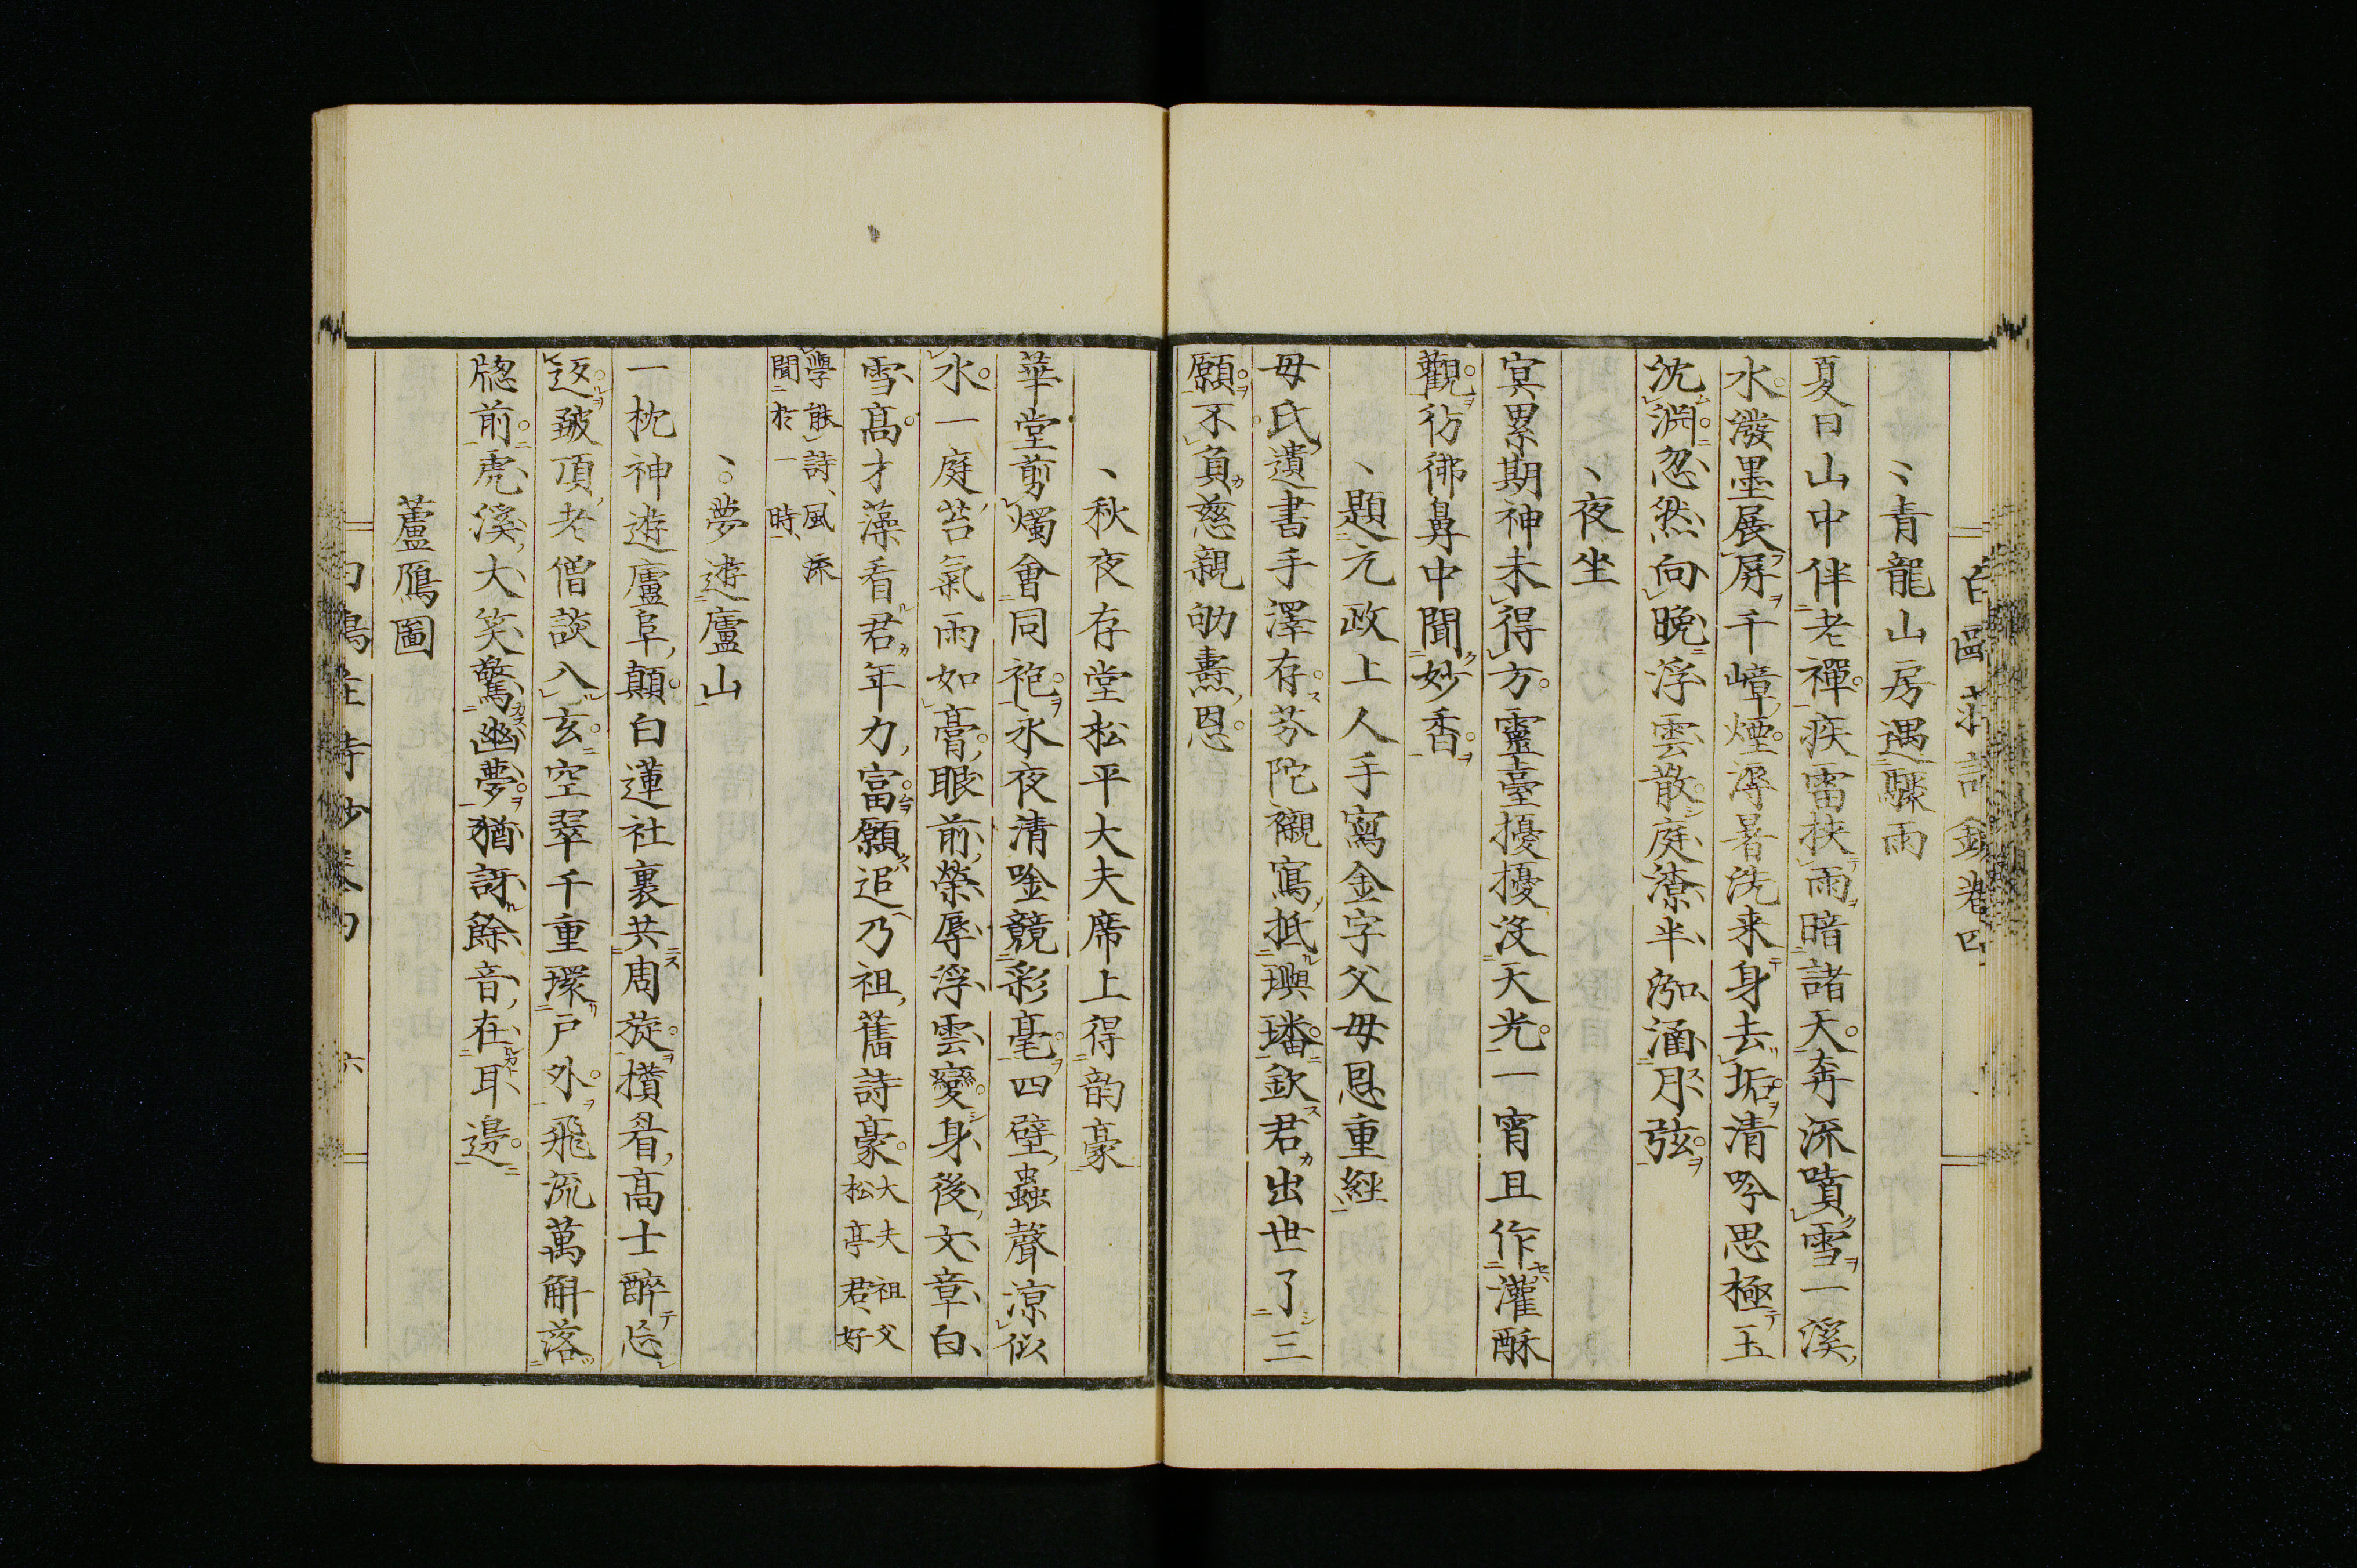 青龍山房遇驟雨
夏日山中伴老禪疾雷挾雨暗諸天奔流噴雪一溪
水潑墨展屏千嶂煙溽暑洗来身去垢清吟思極玉
沈淵忽然向晩浮雲散庭潦半泓涵月弦
夜坐
冥累期神未得方靈臺擾擾沒天光一宵且作灌酥
觀彷彿鼻中聞妙香
題元政上人手寫金字父母恩重經
母氏遺書手澤存芬陀襯寫抵璵璠欽君出世了三
願不負慈親劬燾恩
秋夜存堂松平大夫席上得韵豪
華堂剪燭會同袍永夜清唫競彩毫四壁蟲聲凉似
水一庭苔氣雨如膏眼前榮辱浮雲變身後文章白
雪高才藻看君年力富願追乃祖舊詩豪大夫祖父松亭君好
學能詩風流聞於一時
夢遊廬山
一枕神遊廬阜顛白蓮社裏共周旋攢眉高士醉忘
返皺頂老僧談入玄空翠千重環戸外飛流萬斛落
牕前虎溪大笑驚幽夢猶訝餘音在耳邊
蘆鴈圖
六